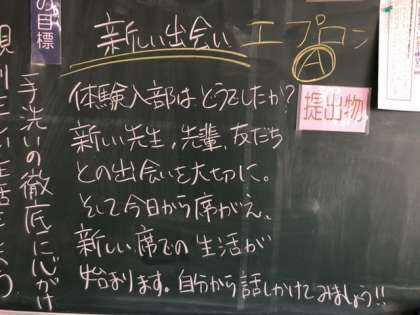 の目標
新しい出会い
エプロン
A
体験入部はどうでしたか?
新しい先生、先輩、友だち
との出会いを大切に。
そして今日から席がえ、
新しい席での生活が
始まります。自分から話しかけてみましょう!!
提出物
手洗いの徹底に心がけ
規則正しい生活を